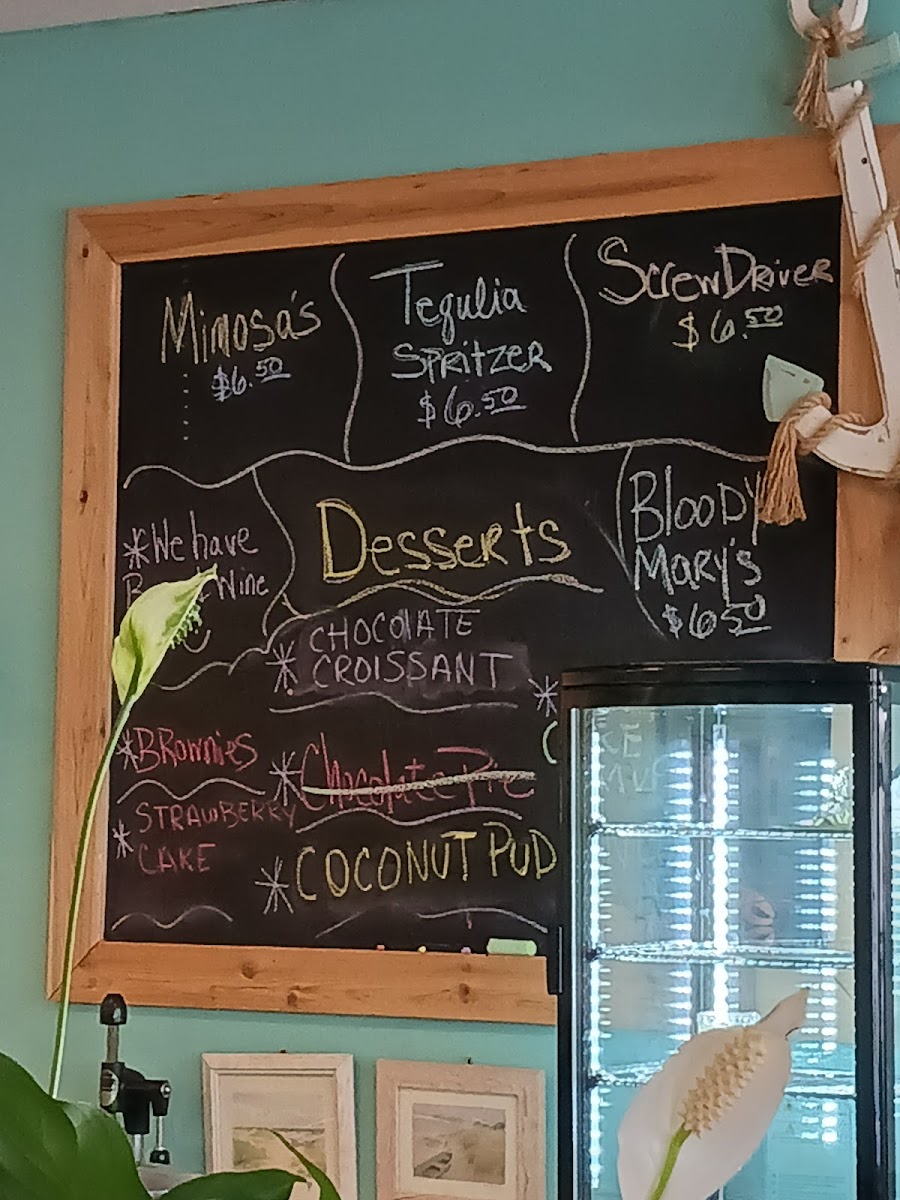 Mimosa's
$6.50
Tequlia
Spritzer
$6.50
ScrewDriver
$6.50
*We have
Wine
Desserts
Bloody
Mary's
$6.50
* CHOCOlATE
CROISSANT
*BRowNies
*Chocolate Pie
* STRAWBERRY
CAKE
*COCONUT PUD